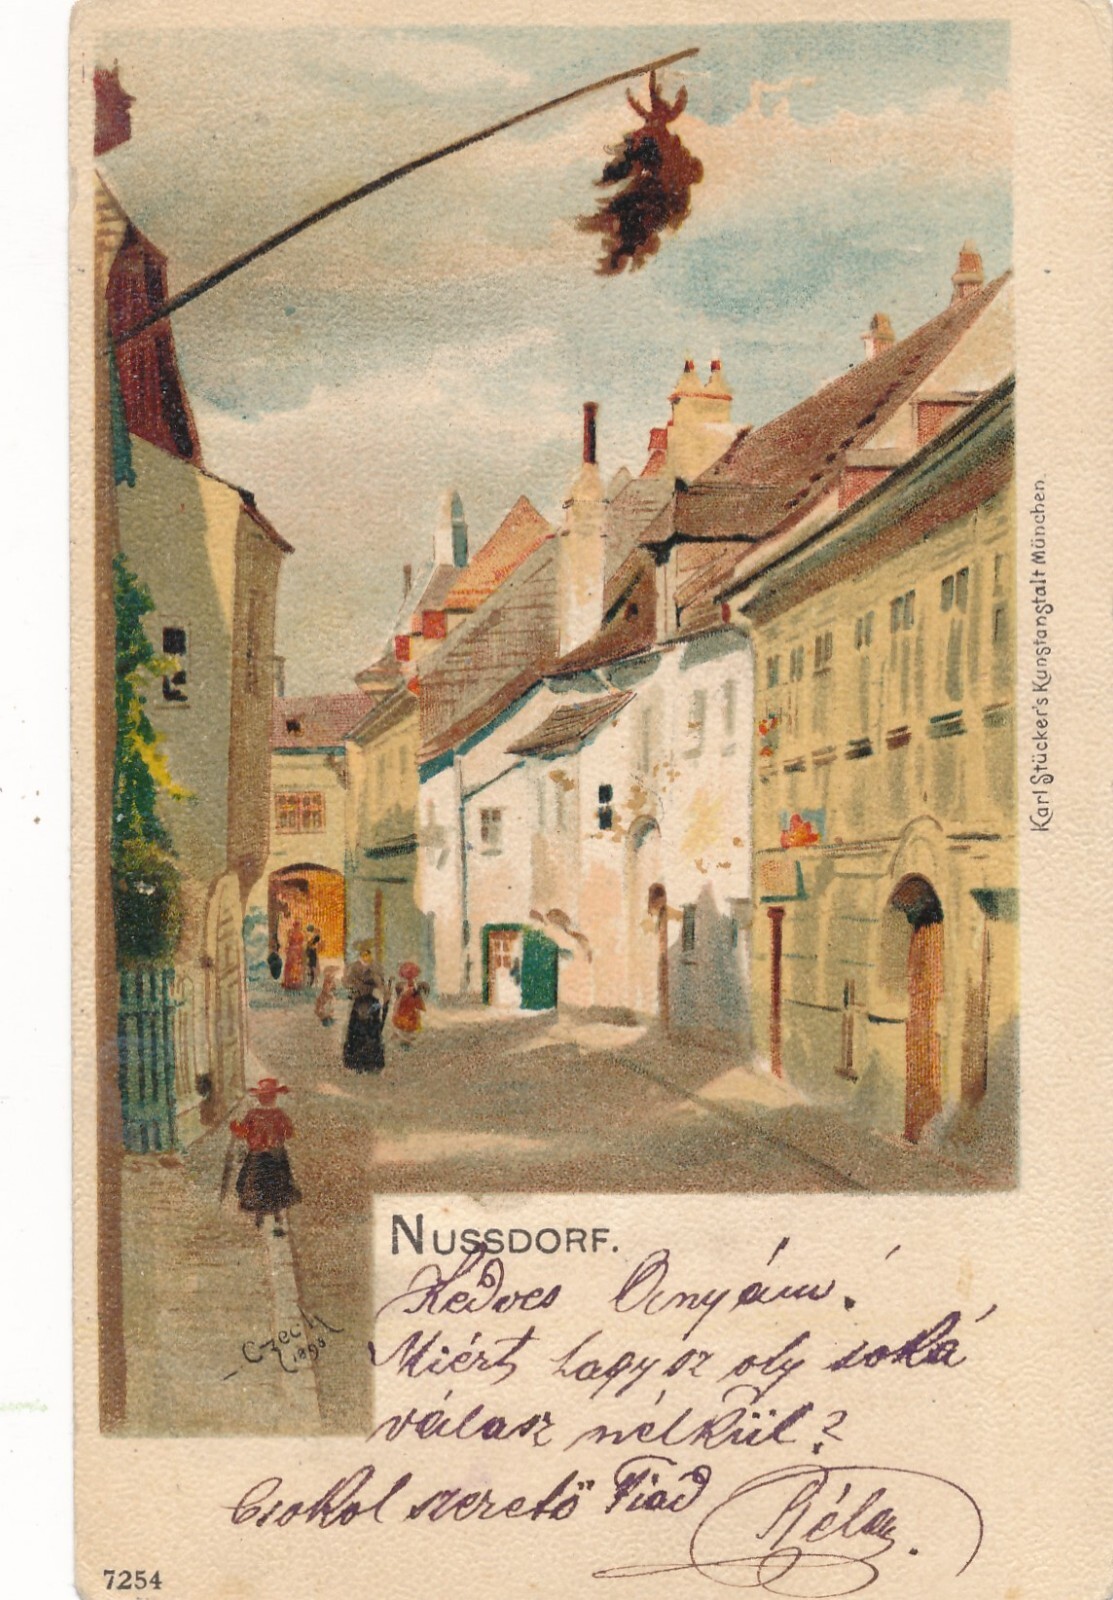 Karl Stücker's Kunstanstalt München.
NUSSDORF.
Kedves Anyám!
Miért hagysz oly soká
válasz nélkül?
Csokol szerető Fiad
Béla.
Czech
1898
7254